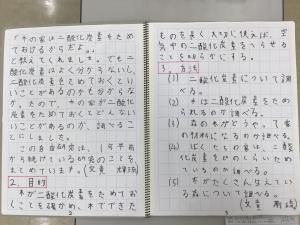 「木の家は二酸化炭素をため
ておけるからだよ。」
と教えてくれました。でも二
酸化炭素はよく分からないし、
二酸化炭素をためておくとい
いことがあるのかも分からな
かったので、木の家が二酸化炭
素をためておくとどんないい
ことがあるのか、調べるこ
とにしました。
この自由研究は、1年半前
から続けている研究のことを、
まとめていきます。
2. 目的
木が二酸化炭素をためてお
くことを確かめ、木でできた
2
ものを長く大切に使えば、空
気中の二酸化炭素をへらせる
ことを明らかにする。
3. 方法
(1) 二酸化炭素について調
べる。
(2) 木は二酸化炭素をため
られるのか調べる。
(3) 森の木がどうやって家
の材料になるのか調べる。
(4) ぼくたちの家は、二酸
化炭素をどのくらいため
ているのか調べる。
(5) 木がたくさん生えてい
る森について調べる。
3